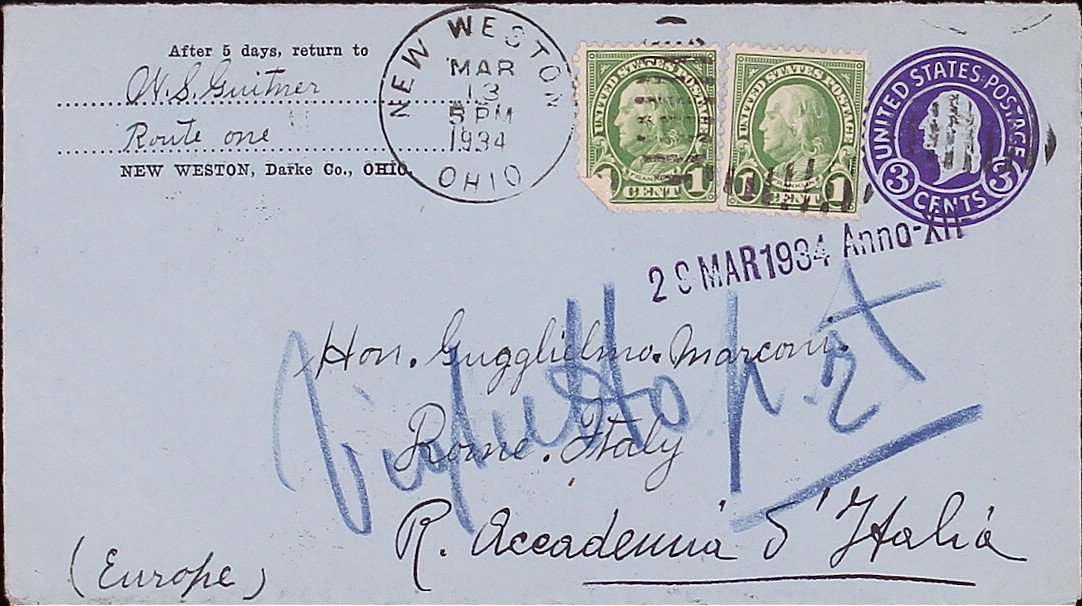 After 5 days, return to
W. S. Guitner
Route one
NEW WESTON, Darke Co., OHIO.
NEW WESTON
MAR
13
5 PM
1934
OHIO
UNITED STATES POSTAGE
FRANKLIN
CENT 1
UNITED STATES POSTAGE
1 CENT 1
UNITED STATES POSTAGE
3 CENTS 3
MAR 1934 Anno-XII
Hon. Gugglielmo. Marconi.
Rome. Italy
R. Accademia d'Italia
(Europe)